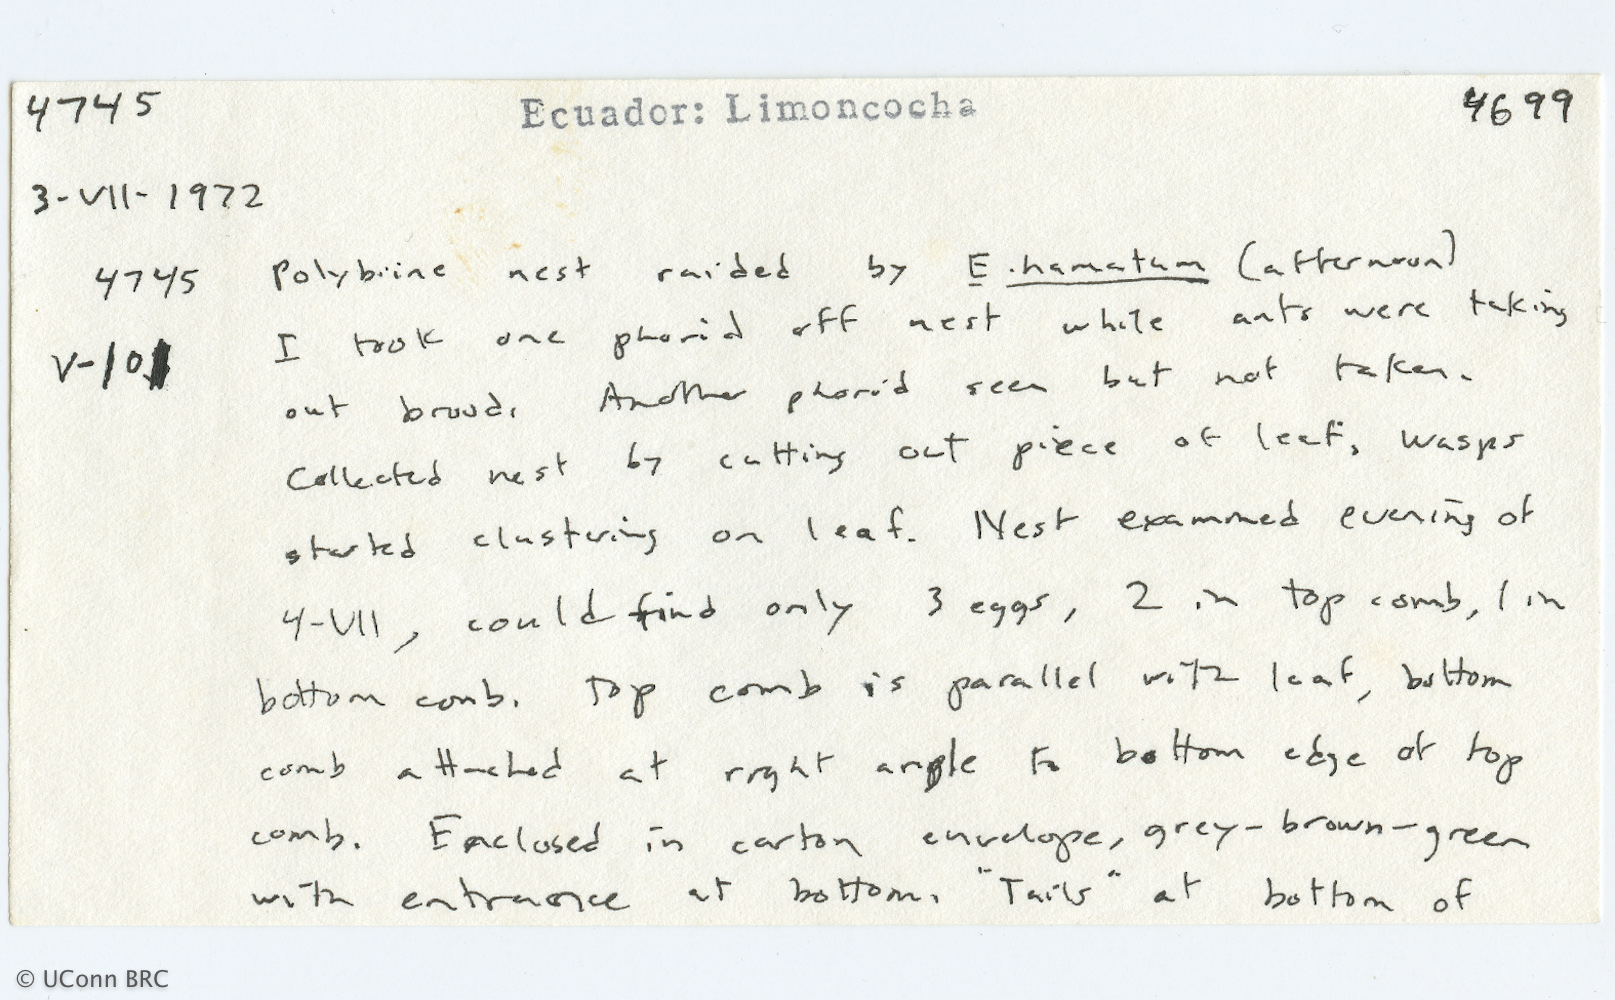 4745 Ecuador: Limoncocha 4699
3-VII-1972
4745 Polybiine nest raided by E. hamatum (afternoon)
V-10 I took one phorid off nest while ants were taking
out brood. Another phorid seen but not taken.
Collected nest by cutting out piece of leaf, wasps
started clustering on leaf. Nest examined evening of
4-VII, could find only 3 eggs, 2 in top comb, 1 in
bottom comb. Top comb is parallel with leaf, bottom
comb attached at right angle to bottom edge of top
comb. Enclosed in carton envelope, grey-brown-green
with entrance at bottom. "Tails" at bottom of
© UConn BRC